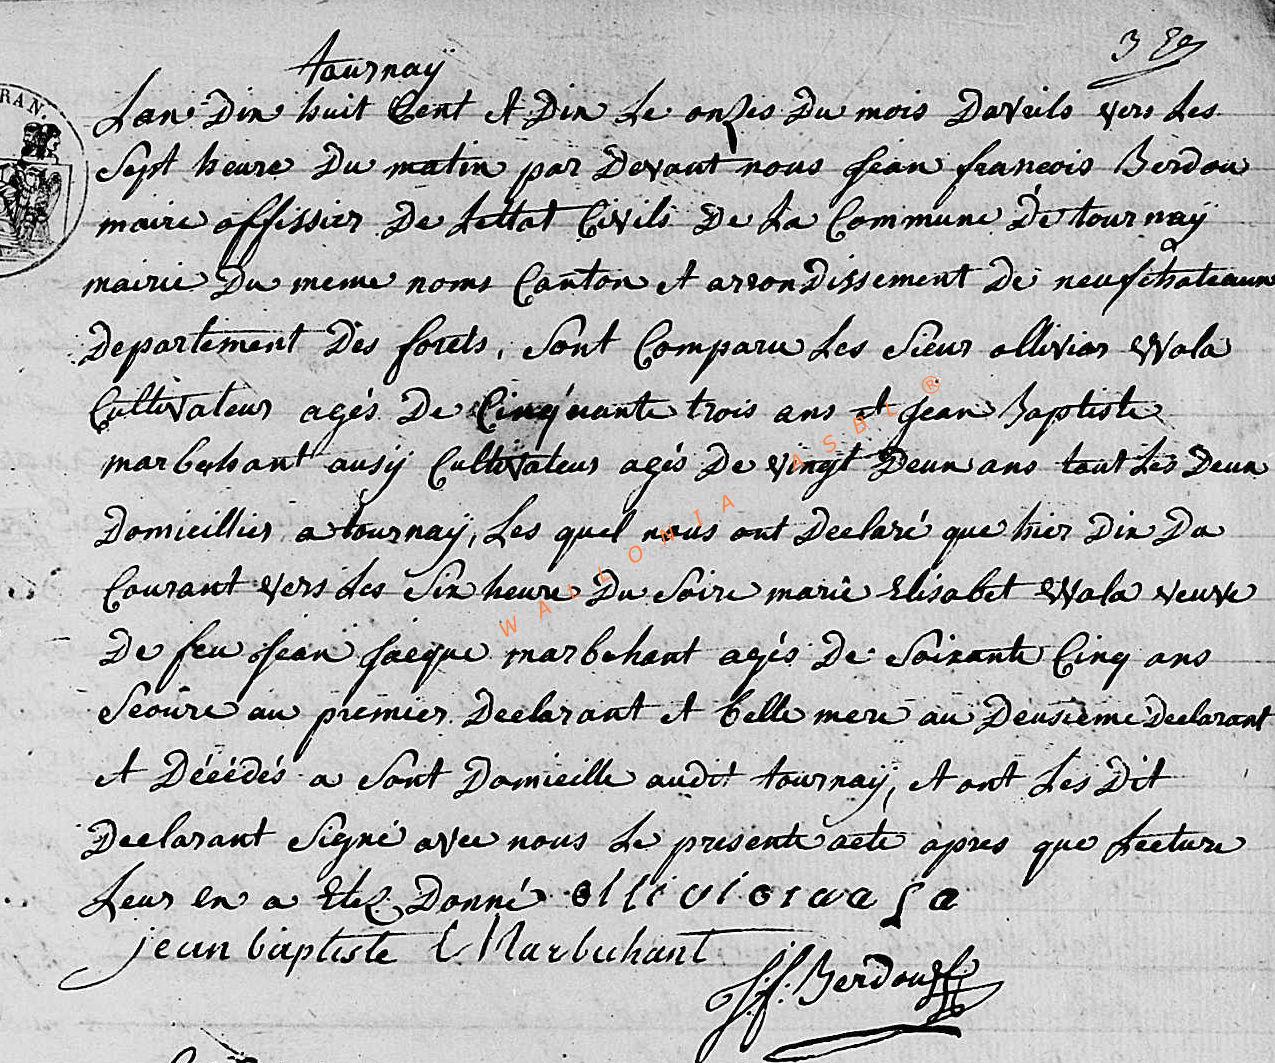 3 Eg
tournaÿ
RAN.
Lan Dix huit Cent et Dix Le onzes Du mois Davrils vers Les
Sept heure Du matin par Devant nous Jean francois Berdou
maire offissier De Lettat Civils De La Commune De tournaÿ
mairie Du meme noms Canton et arrondissement De neufchateaux
Departement Des forets, Sont Comparu Les Sieur ollivier Wala
Cultivateur agés De Cinquante trois ans et Jean Baptiste
marbehant ausÿ Cultivateur agés De vingt Deux ans tout Les Deux
Domicillier a tournaÿ, Les quel nous ont Declaré que hier Dix Du
Courant vers Les Six heure Du Soire marie Elisabet Wala veuve
De feu Jean Jacque marbehant agés De Soixante Cinq ans
Seoure au premier Declarant et belle mere au Deusieme Declarant
et Décédés a Sont Domicille audit tournaÿ, et ont Les Dit
Declarant Signé avec nous Le presente acte apres que Lecture
Leur en a Etez Donné ollivier
jean baptiste Marbehant
J.f. Berdou
WALLONIA ASBL ®